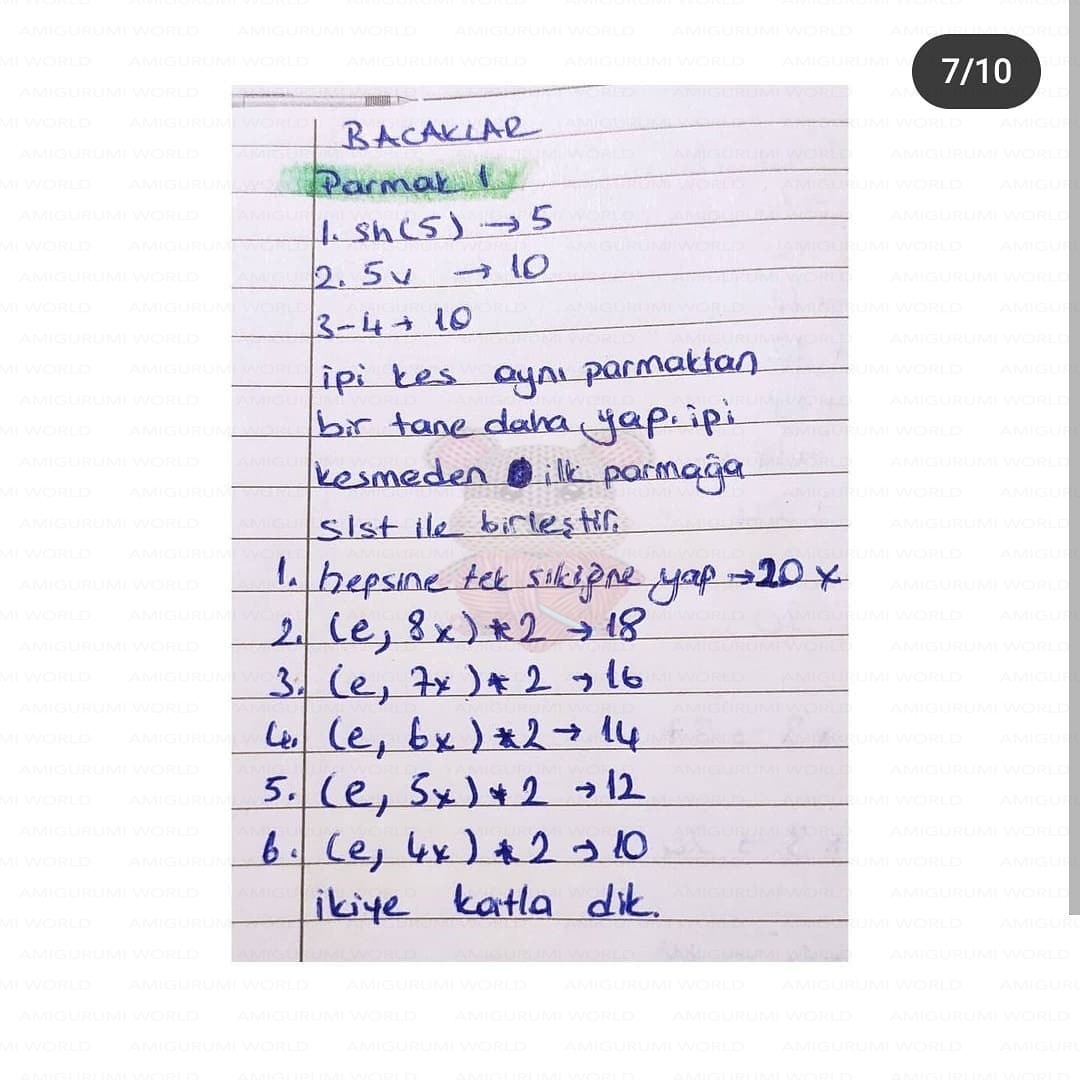 7/10
BACAKLAR
Parmak 1
1. sh(5) → 5
2. 5v → 10
3-4 → 10
ipi kes aynı parmaktan
bir tane daha yap. ipi
kesmeden ilk parmağa
slst ile birleştir.
1. hepsine tek sıkiğne yap → 20 x
2. (e, 8x) * 2 → 18
3. (e, 7x) * 2 → 16
4. (e, 6x) * 2 → 14
5. (e, 5x) * 2 → 12
6. (e, 4x) * 2 → 10
ikiye katla dik.
AMIGURUMI WORLD